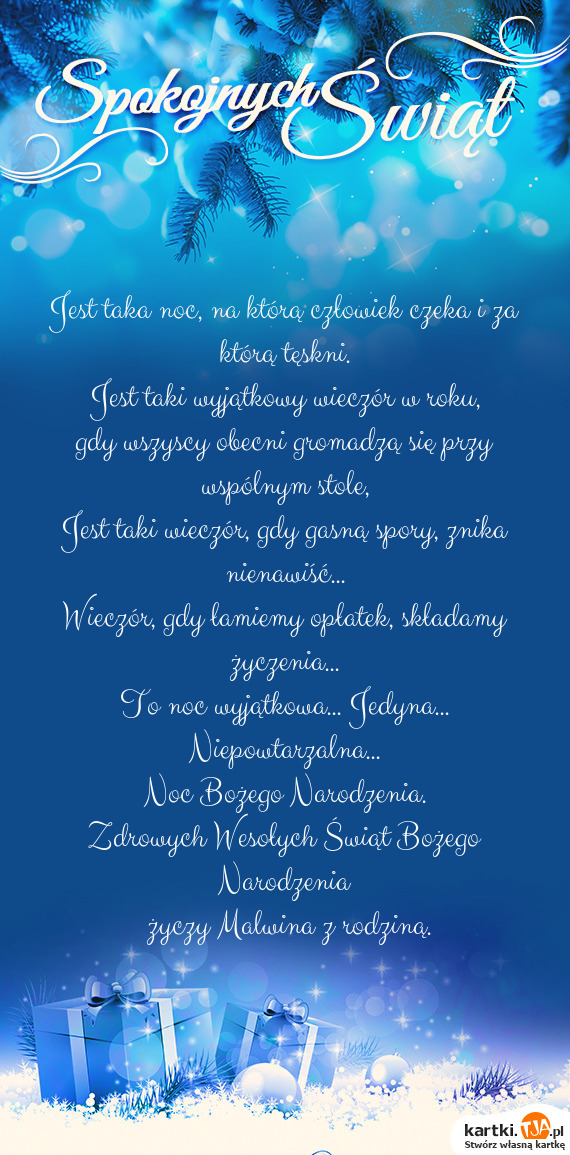 Spokojnych Świąt
Jest taka noc, na którą człowiek czeka i za
którą tęskni.
Jest taki wyjątkowy wieczór w roku,
gdy wszyscy obecni gromadzą się przy
wspólnym stole,
Jest taki wieczór, gdy gasną spory, znika
nienawiść...
Wieczór, gdy łamiemy opłatek, składamy
życzenia...
To noc wyjątkowa... Jedyna...
Niepowtarzalna...
Noc Bożego Narodzenia.
Zdrowych Wesołych Świąt Bożego
Narodzenia
życzy Malwina z rodziną.
kartki.TJA.pl
Stwórz własną kartkę